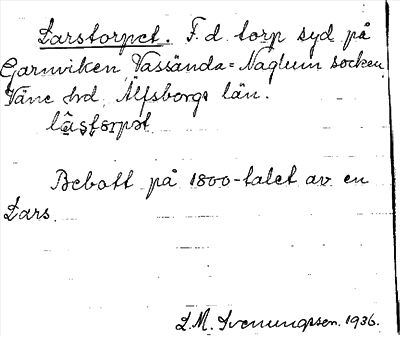 Larstorpet. F. d. torp syd på
Garnviken, Vassända-Naglum socken,
Väne hrd, Älfsborgs län.
la̱ʂtɔrpət
Bebott på 1800-talet av en
Lars.
L. M. Svenungsson. 1936.